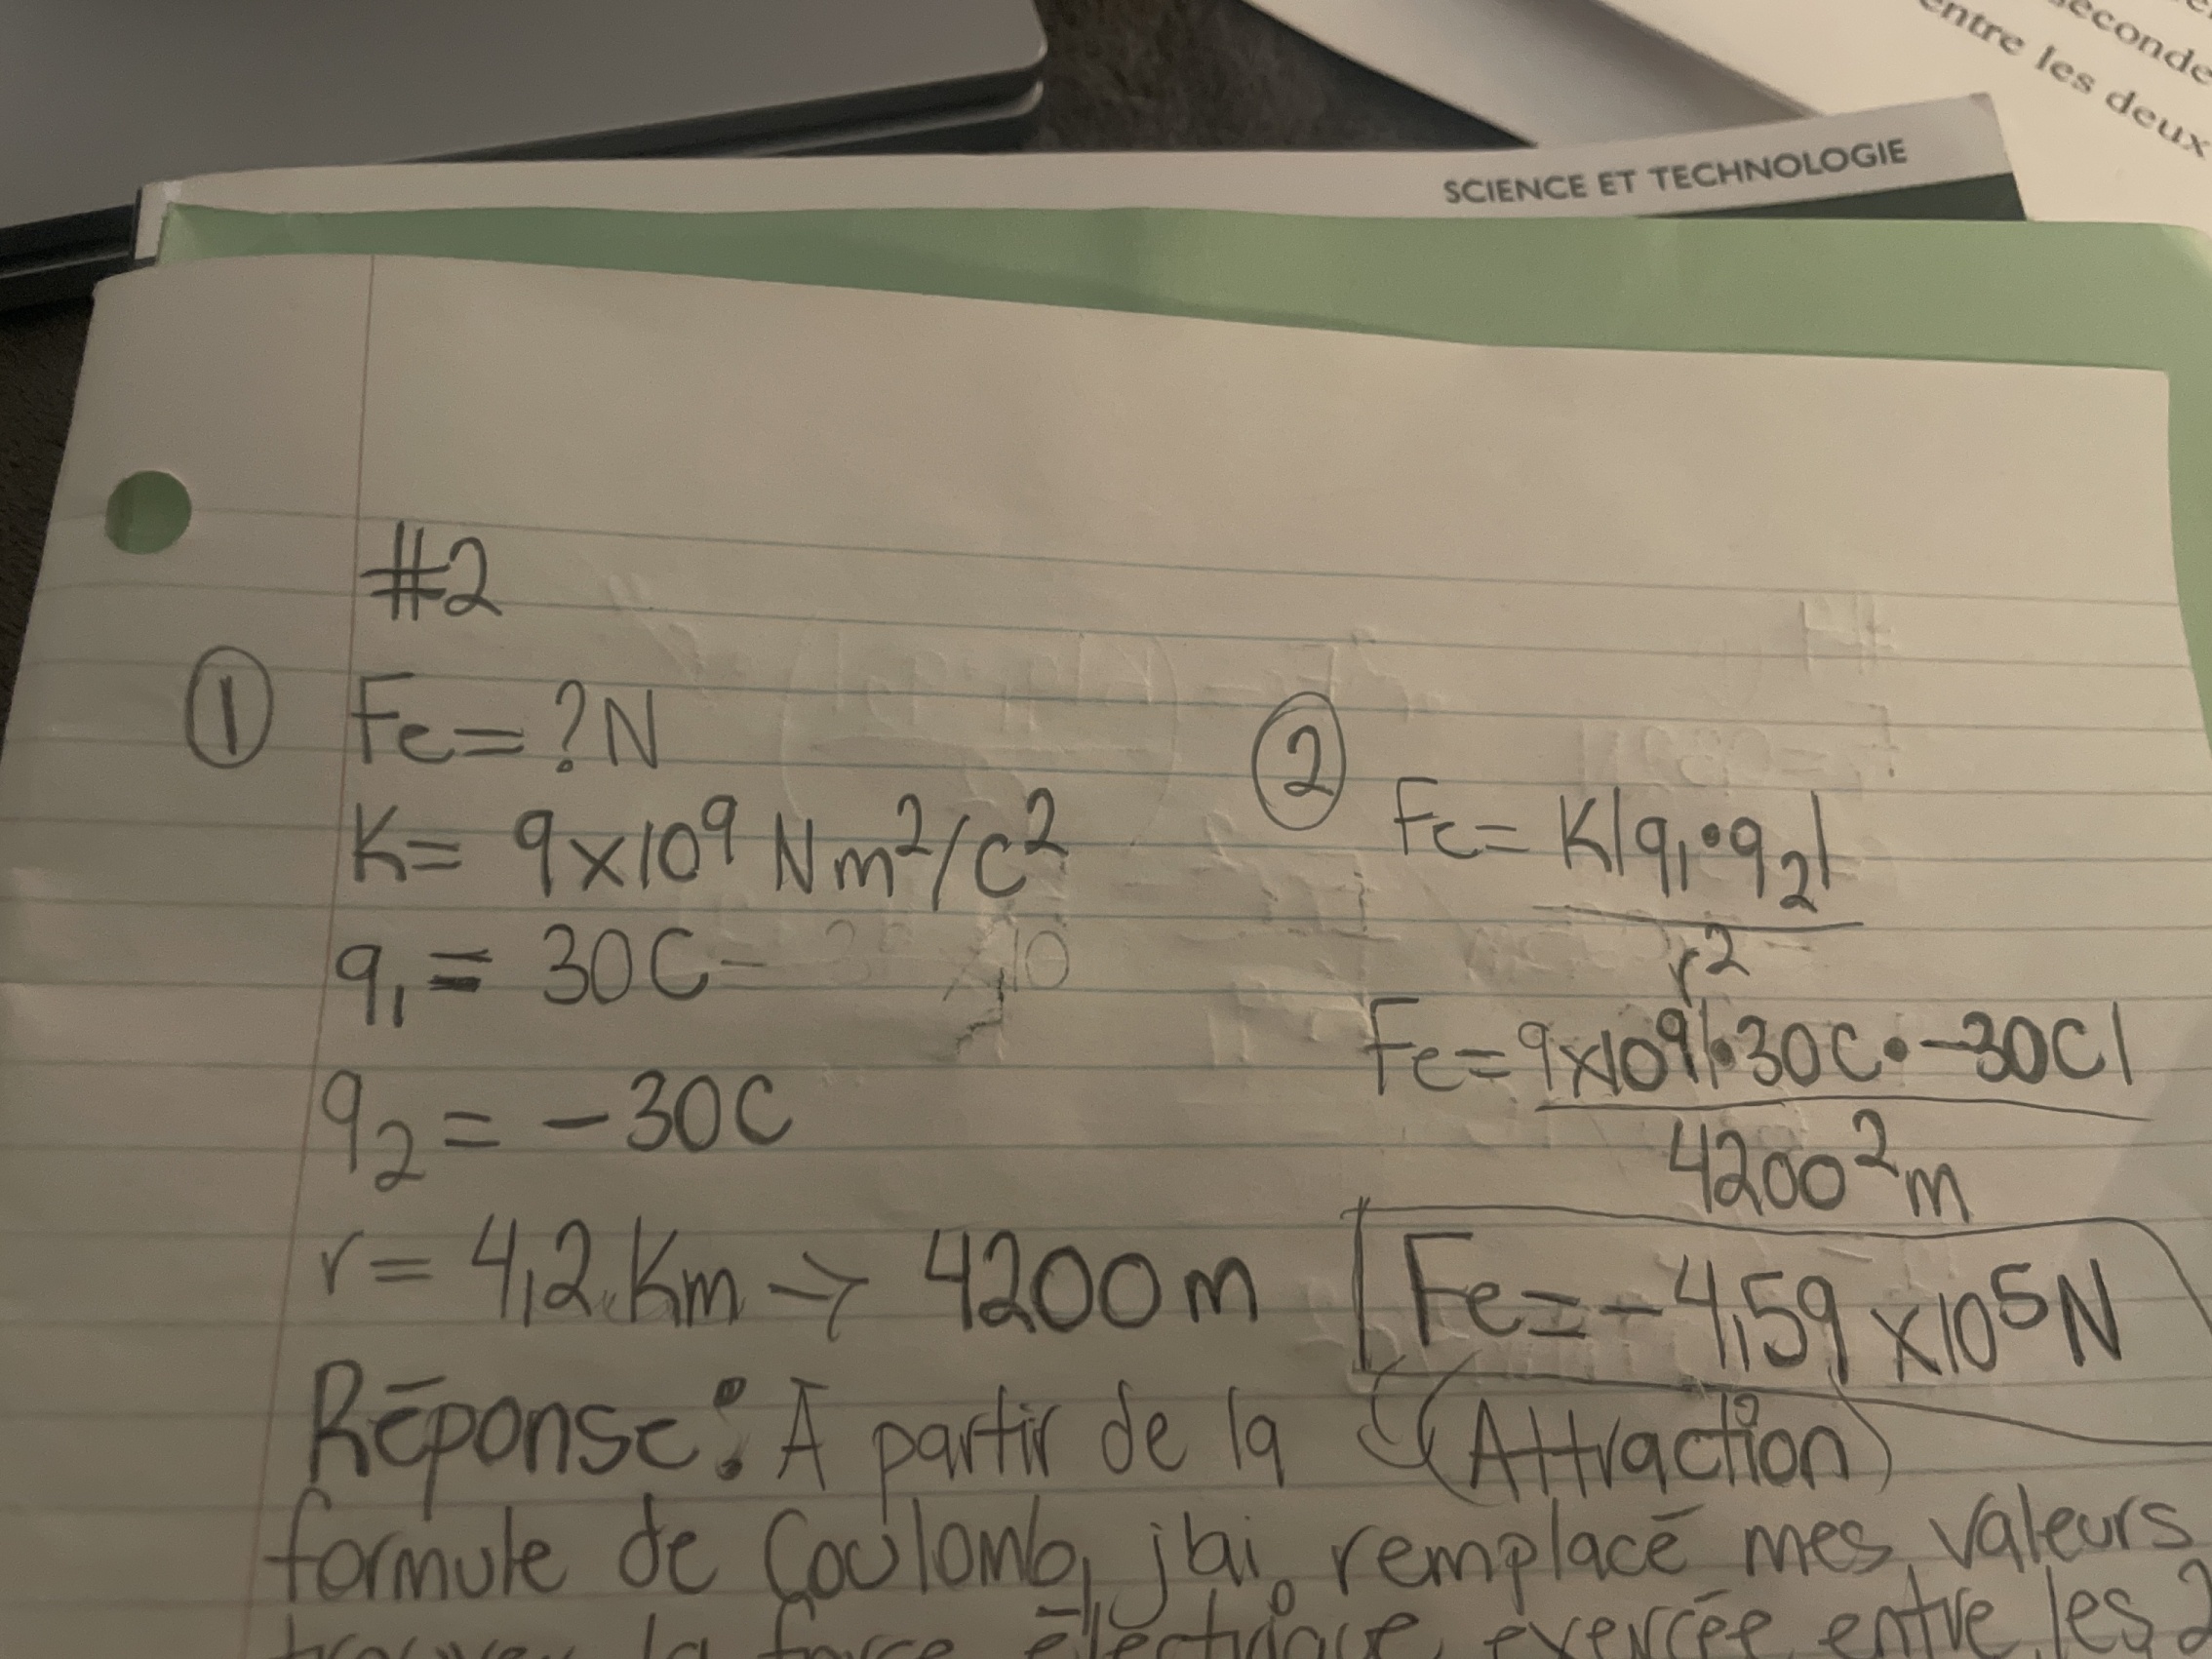 seconde
entre les deux
SCIENCE ET TECHNOLOGIE
#2
① Fe = ?N
K= 9x10⁹ Nm²/C²
q₁ = 30C-
q₂ = -30C
r = 4,2 Km → 4200m
② Fe = K|q₁•q₂|
r²
Fe = 9x10⁹|•30C•-30C|
4200²m
Fe = -4,59 x10⁵N
(Attraction)
Réponse: À partir de la
formule de Coulomb, j'ai remplacé mes valeurs
trouver la force électrique exercée entre les 2